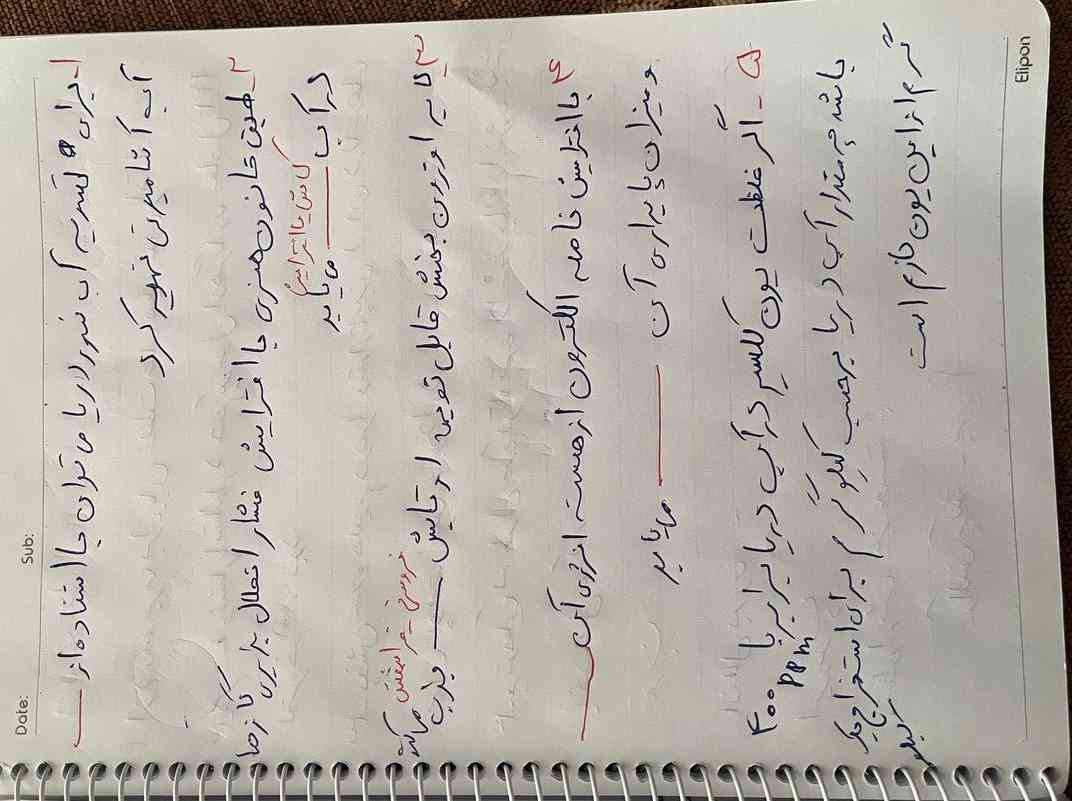 Date:
Sub:
۱- برای تصفیه آب شور دریا می توان با استفاده از ——
آب آشامیدنی تهیه کرد
۲- طبق قانون هنری با افزایش فشار انحلال پذیری گازها
در آب —— می یابد
کاهش یا افزایش
۳- لایه اوزون بخش قابل توجهی از تابش —— جذب می کند
فروسرخ - فرابنفش
۴- با افزایش فاصله الکترون از هسته انرژی آن ——
و میزان پایداری آن —— می یابد
۵- اگر غلظت یون کلسیم در آب دریا برابر با ۴۰۰ ppm
باشد چه مقدار آب دریا برحسب کیلوگرم برای استخراج یک کیلو
گرم از این یون لازم است
Elipon